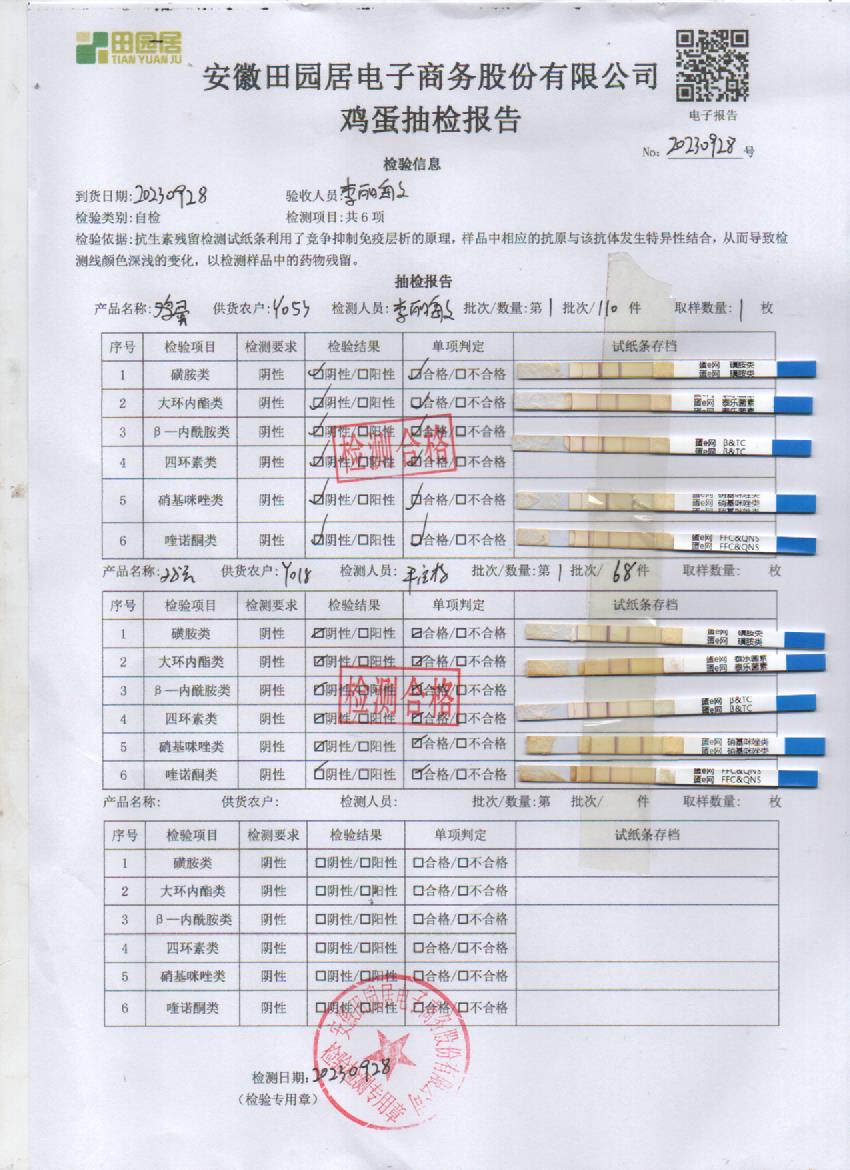 田园居
TIAN YUAN JU
安徽田园居电子商务股份有限公司
鸡蛋抽检报告
电子报告
No: 20230928 号
检验信息
到货日期:20230928 验收人员:
检验类别:自检 检测项目:共6项
检验依据:抗生素残留检测试纸条利用了竞争抑制免疫层析的原理,样品中相应的抗原与该抗体发生特异性结合,从而导致检
测线颜色深浅的变化,以检测样品中的药物残留。
抽检报告
产品名称:鸡蛋 供货农户: 检测人员: 批次/数量:第1 批次/110 件 取样数量:1 枚
序号 检验项目 检测要求 检验结果 单项判定 试纸条存档
1 磺胺类 阴性 ☑阴性/☐阳性 ☑合格/☐不合格 蛋e网 磺胺类
蛋e网 磺胺类
2 大环内酯类 阴性 ☑阴性/☐阳性 ☑合格/☐不合格 蛋e网 泰乐菌素
蛋e网 泰乐菌素
3 β—内酰胺类 阴性 ☑阴性/☐阳性 ☑合格/☐不合格 蛋e网 B&TC
蛋e网 B&TC
4 四环素类 阴性 ☑阴性/☐阳性 ☑合格/☐不合格
检测合格
5 硝基咪唑类 阴性 ☑阴性/☐阳性 ☑合格/☐不合格 蛋e网 硝基咪唑类
蛋e网 硝基咪唑类
6 喹诺酮类 阴性 ☑阴性/☐阳性 ☑合格/☐不合格 蛋e网 FFC&QNS
蛋e网 FFC&QNS
产品名称: 供货农户:Y018 检测人员: 批次/数量:第1 批次/68件 取样数量: 枚
序号 检验项目 检测要求 检验结果 单项判定 试纸条存档
1 磺胺类 阴性 ☑阴性/☐阳性 ☑合格/☐不合格 蛋e网 磺胺类
蛋e网 磺胺类
2 大环内酯类 阴性 ☑阴性/☐阳性 ☑合格/☐不合格 蛋e网 泰乐菌素
蛋e网 泰乐菌素
3 β—内酰胺类 阴性 ☑阴性/☐阳性 ☑合格/☐不合格 蛋e网 B&TC
蛋e网 B&TC
检测合格
4 四环素类 阴性 ☑阴性/☐阳性 ☑合格/☐不合格
5 硝基咪唑类 阴性 ☑阴性/☐阳性 ☑合格/☐不合格 蛋e网 硝基咪唑类
蛋e网 硝基咪唑类
6 喹诺酮类 阴性 ☑阴性/☐阳性 ☑合格/☐不合格 蛋e网 FFC&QNS
蛋e网 FFC&QNS
产品名称: 供货农户: 检测人员: 批次/数量:第 批次/ 件 取样数量: 枚
序号 检验项目 检测要求 检验结果 单项判定 试纸条存档
1 磺胺类 阴性 ☐阴性/☐阳性 ☐合格/☐不合格
2 大环内酯类 阴性 ☐阴性/☐阳性 ☐合格/☐不合格
3 β—内酰胺类 阴性 ☐阴性/☐阳性 ☐合格/☐不合格
4 四环素类 阴性 ☐阴性/☐阳性 ☐合格/☐不合格
5 硝基咪唑类 阴性 ☐阴性/☐阳性 ☐合格/☐不合格
6 喹诺酮类 阴性 ☐阴性/☐阳性 ☐合格/☐不合格
安徽田园居电子商务股份有限公司
检验检测专用章
检测日期:20230928
(检验专用章)